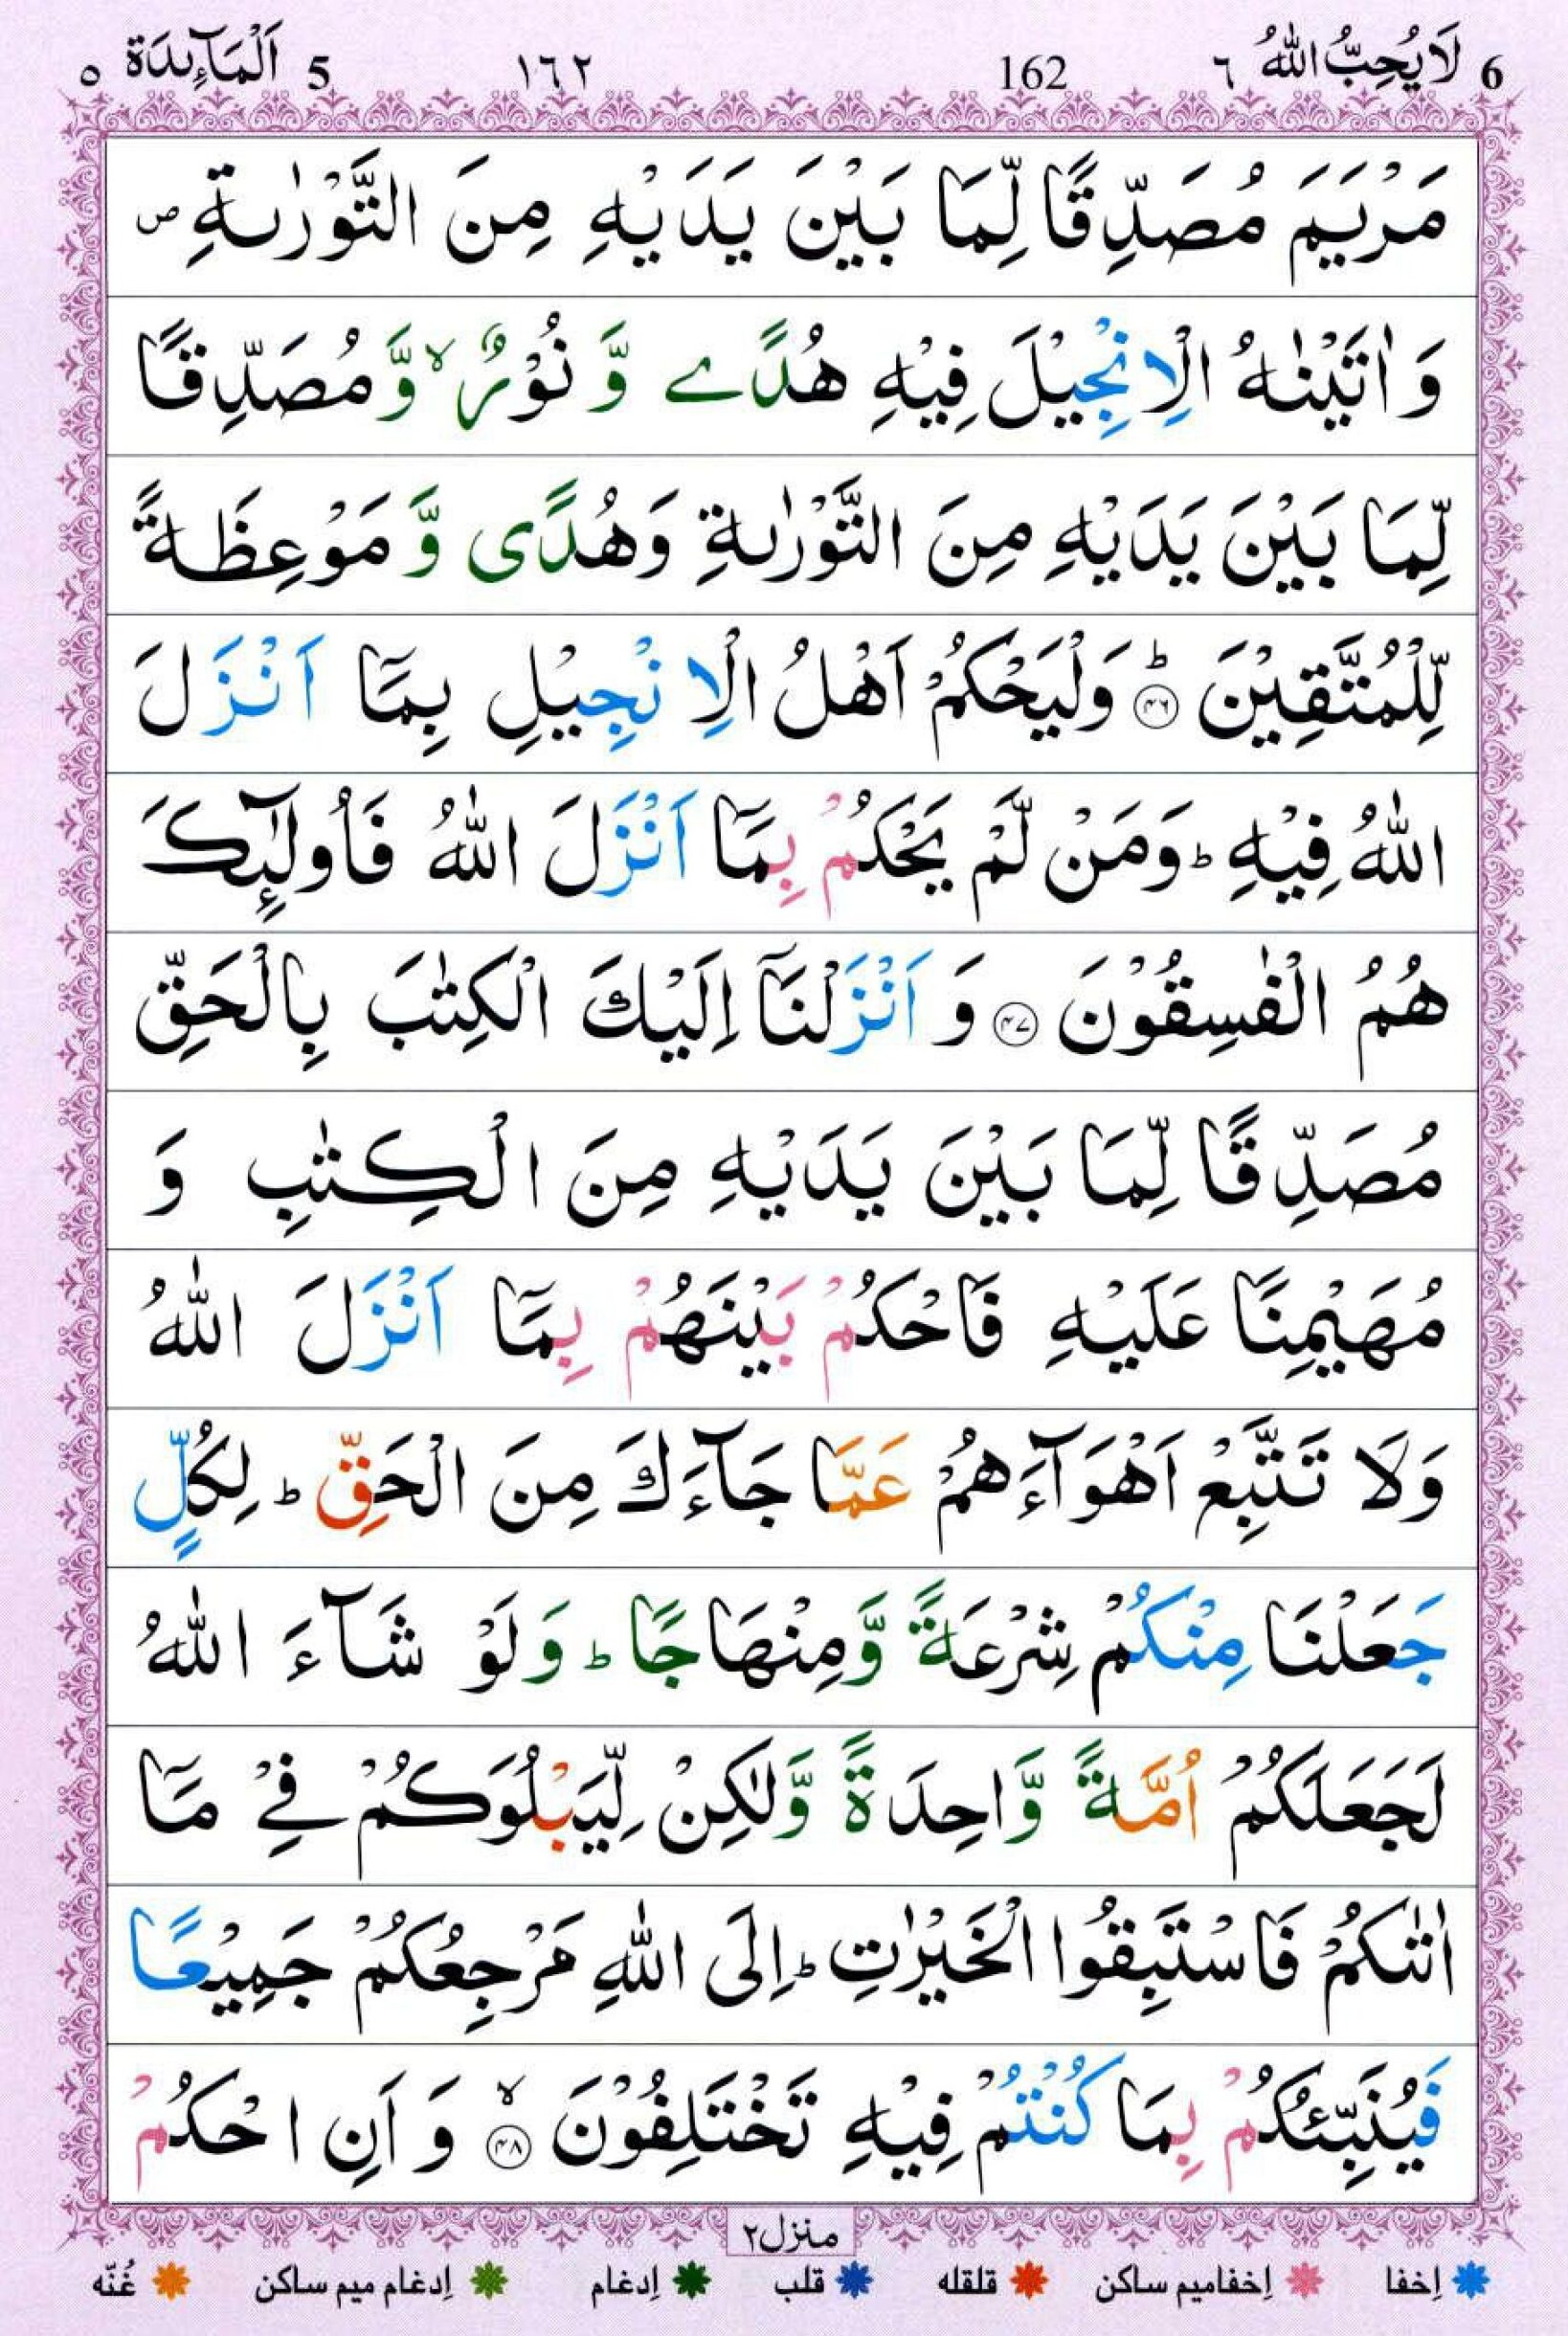 6 لَا يُحِبُّ اللّٰهُ ٦ 162 ١٦٢ 5 اَلْمَآئِدَة ٥
مَرْيَمَ مُصَدِّقًا لِّمَا بَيْنَ يَدَيْهِ مِنَ التَّوْرٰىةِ ۪
وَ اٰتَيْنٰهُ الْاِنْجِيْلَ فِيْهِ هُدًے وَّ نُوْرٌ ۙ وَّ مُصَدِّقًا
لِّمَا بَيْنَ يَدَيْهِ مِنَ التَّوْرٰىةِ وَهُدًى وَّ مَوْعِظَةً
لِّلْمُتَّقِيْنَ ؕ ﴿۴۶﴾ وَلْيَحْكُمْ اَهْلُ الْاِنْجِيْلِ بِمَاۤ اَنْزَلَ
اللّٰهُ فِيْهِ ؕ وَمَنْ لَّمْ يَحْكُمْ بِمَاۤ اَنْزَلَ اللّٰهُ فَاُولٰٓئِكَ
هُمُ الْفٰسِقُوْنَ ﴿۴۷﴾ وَ اَنْزَلْنَاۤ اِلَيْكَ الْكِتٰبَ بِالْحَقِّ
مُصَدِّقًا لِّمَا بَيْنَ يَدَيْهِ مِنَ الْكِتٰبِ وَ
مُهَيْمِنًا عَلَيْهِ فَاحْكُمْ بَيْنَهُمْ بِمَاۤ اَنْزَلَ اللّٰهُ
وَلَا تَتَّبِعْ اَهْوَآءَهُمْ عَمَّا جَآءَكَ مِنَ الْحَقِّ ؕ لِكُلٍّ
جَعَلْنَا مِنْكُمْ شِرْعَةً وَّمِنْهَاجًا ؕ وَلَوْ شَآءَ اللّٰهُ
لَجَعَلَكُمْ اُمَّةً وَّاحِدَةً وَّلٰكِنْ لِّيَبْلُوَكُمْ فِيْ مَاۤ
اٰتٰىكُمْ فَاسْتَبِقُوا الْخَيْرٰتِ ؕ اِلَى اللّٰهِ مَرْجِعُكُمْ جَمِيْعًا
فَيُنَبِّئُكُمْ بِمَا كُنْتُمْ فِيْهِ تَخْتَلِفُوْنَ ۙ ﴿۴۸﴾ وَ اَنِ احْكُمْ
منزل۲
اِخفا اِخفامیم ساکن قلقله قلب اِدغام اِدغام میم ساکن غُنّه